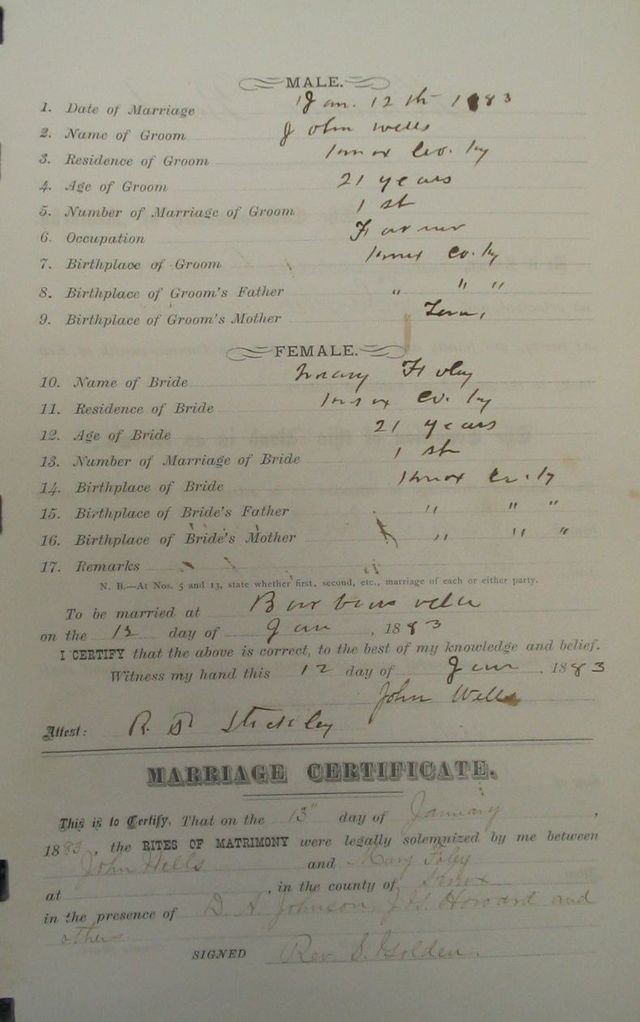 MALE.
1. Date of Marriage Jan. 12th 1883
2. Name of Groom John Wells
3. Residence of Groom Knox Co. Ky
4. Age of Groom 21 years
5. Number of Marriage of Groom 1 st
6. Occupation Farmer
7. Birthplace of Groom Knox Co. Ky
8. Birthplace of Groom's Father " " "
9. Birthplace of Groom's Mother Tenn,
FEMALE.
10. Name of Bride Mary Foley
11. Residence of Bride Knox Co. Ky
12. Age of Bride 21 years
13. Number of Marriage of Bride 1 st
14. Birthplace of Bride Knox Co. Ky
15. Birthplace of Bride's Father " " "
16. Birthplace of Bride's Mother " " "
17. Remarks
N. B.—At Nos. 5 and 13, state whether first, second, etc., marriage of each or either party.
To be married at
on the day of Jan , 1883
I CERTIFY that the above is correct, to the best of my knowledge and belief.
Witness my hand this 12 day of Jan , 1883
John Wells
Attest: R.
MARRIAGE CERTIFICATE.
This is to Certify, That on the 13" day of January ,
1883, the RITES OF MATRIMONY were legally solemnized by me between
John Wells and Mary Foley
at , in the county of Knox
in the presence of D. A. Johnson, Howard and
others
SIGNED Rev. S. Golden.